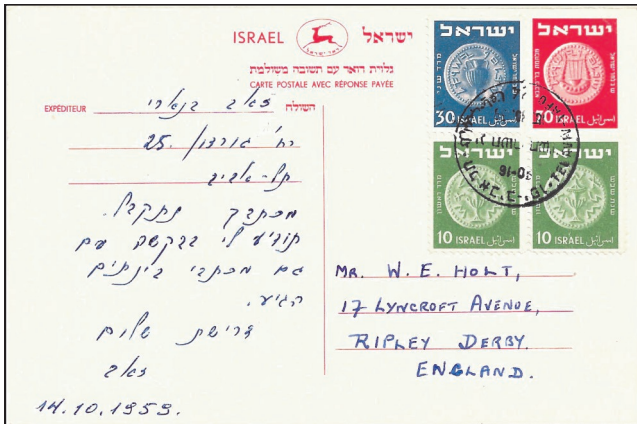 ISRAEL ישראל
גלוית דואר עם תשובה משולמת
CARTE POSTALE AVEC RÉPONSE PAYÉE
EXPÉDITEUR השולח
זאב
רח' גורדון 25.
תל-אביב
מכתבך נתקבל.
תודיע לי בבקשה עם
גם מכתבי בינתים
הגיע.
דרישת שלום
זאב
14.10.1959.
ישראל
30 ISRAEL
ישראל
20 ISRAEL
ישראל
10 ISRAEL
ישראל
10 ISRAEL
MR. W. E. HOLT,
17 LYNCROFT AVENUE,
RIPLEY DERBY.
ENGLAND.